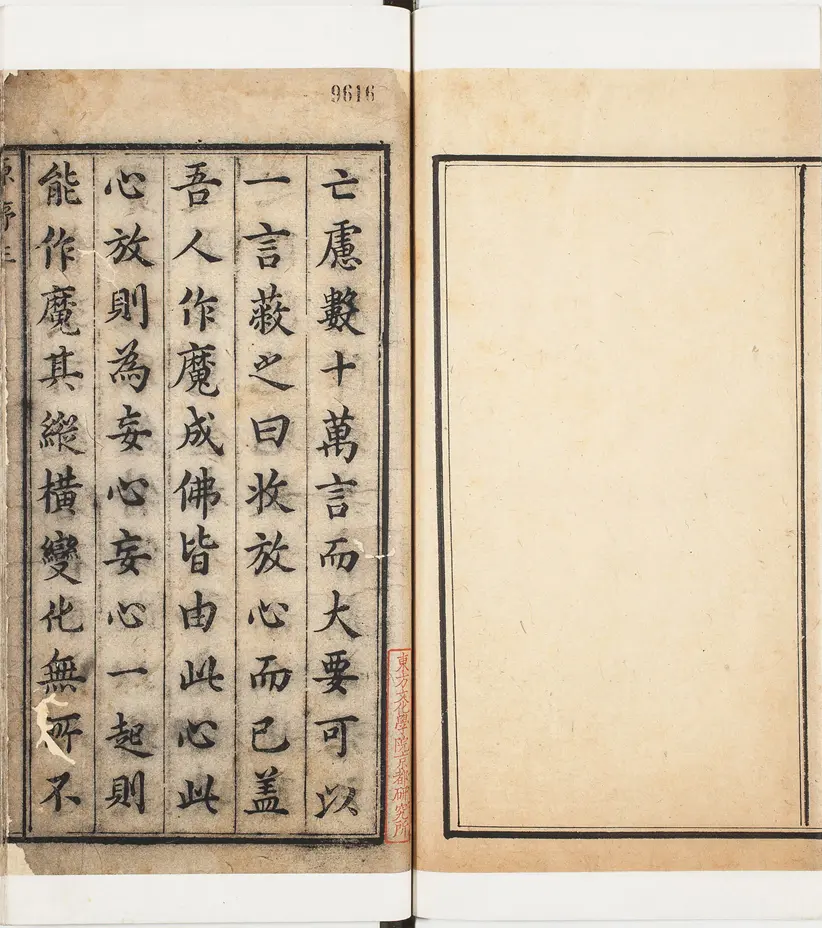 9616
亡慮數十萬言而大要可以
一言蔽之曰收放心而已盖
吾人作魔成佛皆由此心此
心放則為妄心妄心一起則
能作魔其縱橫變化無所不
東方文化學院京都研究所